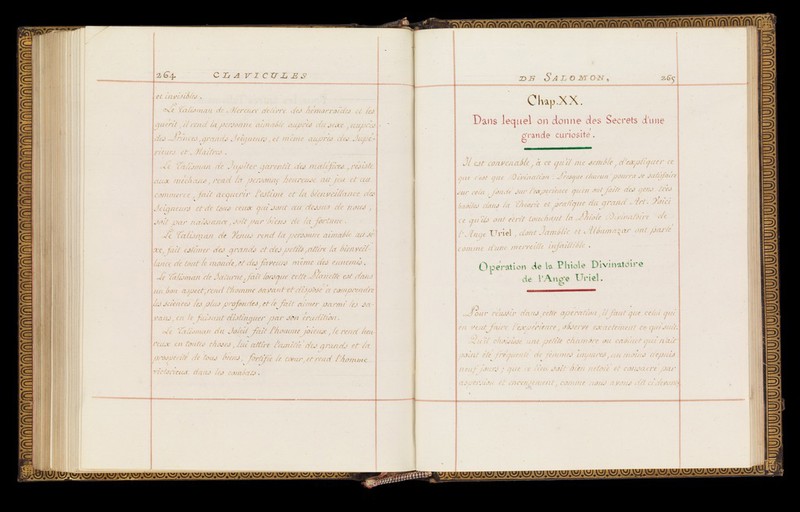 264 CLAVICULES
et invisible.
Le Talisman de Mercure délivre des hémorroïdes et les
guérit, il rend la personne aimable auprès du sexe, auprès
des Princes, grands Seigneurs, et même auprès des Supé-
rieurs et Maîtres.
Le Talisman de Jupiter garantit des maléfices, résiste
aux méchans, rend la personne heureuse au jeu et en
commerce, fait acquérir l'estime et la bienveillance des
Seigneurs et de tous ceux qui sont au dessus de nous,
soit par naissance, soit par biens de la fortune.
Le Talisman de Venus rend la personne aimable au se-
xe, fait estimer des grands et des petits, attire la bienveil-
lance de tout le monde, et des faveurs même des ennemis.
Le Talisman de Saturne fait lorsque cette Planette est dans
un bon aspect, rend l'homme savant et dispose à comprendre
les sciences les plus profondes, et le fait aimer parmi les sa-
vans, en le faisant distinguer par son érudition.
Le Talisman du Soleil fait l'homme joieux, le rend heu-
reux en toutes choses, lui attire l'amitié des grands et la
prospérité de tous biens, fortifie le cœur, et rend l'homme
victorieux dans les combats.
DE SALOMON, 265
Chap. XX.
Dans lequel on donne des Secrets d'une
grande curiosité.
Il est convenable, à ce qu'il me semble, d'expliquer ce
que c'est que Divination. Lorsque chacun pourra se satisfaire
sur cela, fondé sur l'expérience qu'en ont faite des gens très
habiles dans la Théorie et pratique du grand Art. Voici
ce qu'ils ont écrit touchant la Phiole Divinatoire de
l'Ange Uriel, dont et Albumazar ont parlé
comme d'une merveille infaillible.
Operation de la Phiole Divinatoire
de l'Ange Uriel.
Pour réussir dans cette opération, il faut que celui qui
en veut faire l'expérience, observe exactement ce qui suit.
Qu'il choisisse une petite chambre ou cabinet qui n'ait
point été fréquenté de femmes impures, au moins depuis
neuf jours; que ce lieu soit bien nétoié et consacré par
aspersion et encensement, comme nous avons dit ci-devant;